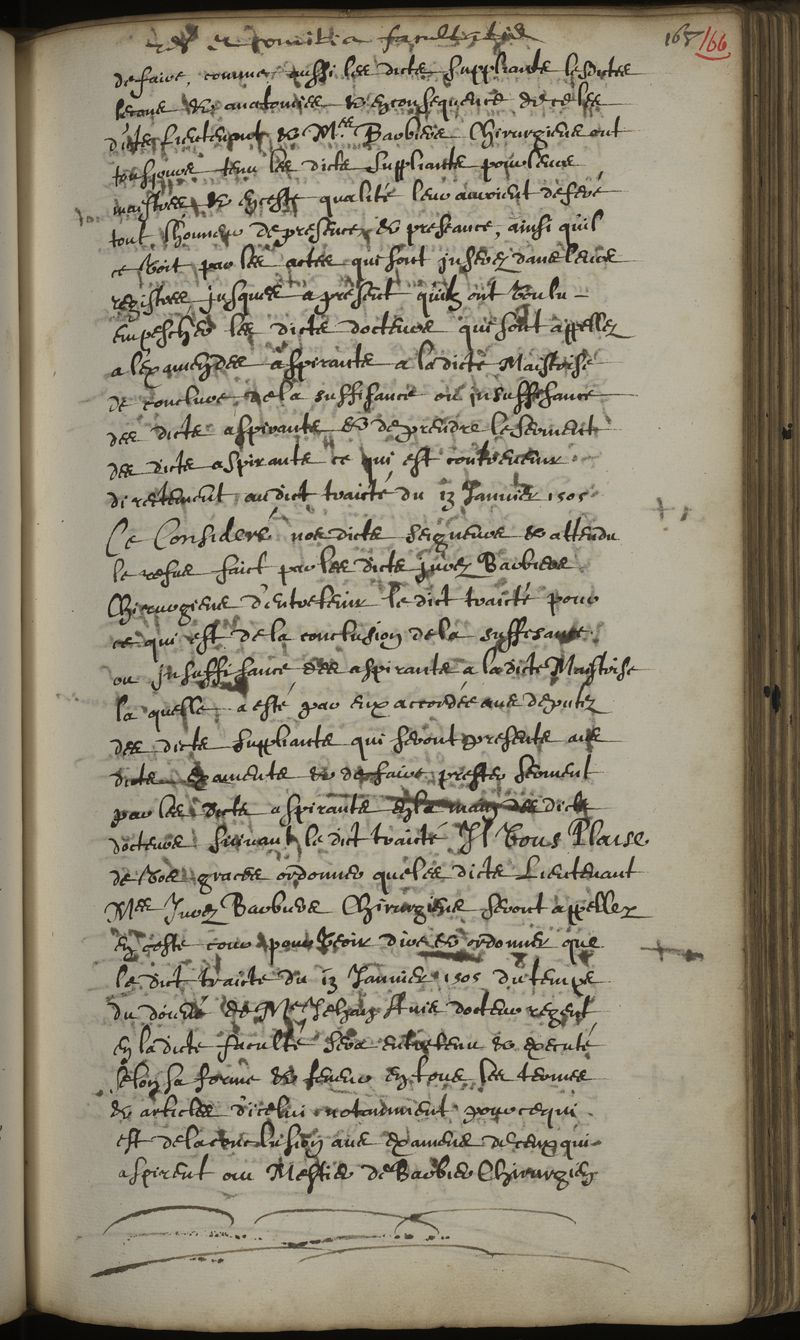 et comitia facultatis
165 166
de faire, comme aussi les dicts suppliants lesdictes
lecons et anatomies et en consequence de ce les
dicts Lieutenant et Mes Barbiers Chirurgiens ont
tousjours tenu les dicts suppliants pour leurs
maistres et en ceste qualité leur auroient deferé
tout l'honneur de presence et preseance, ainsi qu'il
ce voit par les actes qui sont inserez dans leurs
registres jusques a present qu'ilz ont voulu
empescher les dicts docteurs qui sont appellez
a l'examen des aspirants a la dicte Maistrise
de conclure de la suffisance ou insuffisance
des dicts aspirants et de prendre le serment
des dicts aspirants ce qui est contrevenir
directement audict traicté du 13 Janvier 1505
Ce Consideré nos dicts seigneurs et attendu
le refus faict par les dicts jurez Barbiers
Chirurgiens d'entretenir le dict traicté pour
ce qui est de la conclusion de la suffisance
ou insuffisance des aspirants a la dicte Maistrise
la quelle a esté par eux accordée aus deputez
des dicts suppliants qui seront presents aus
dicts examens et de faire prester serment
par les dicts aspirants en la main des dicts
docteurs suivant le dict traicté Il Vous Plaise
de vos graces ordonner que les dicts Lieutenant
Mes Jurez Barbiers Chirurgiens seront appellez
en ceste cour pour veoir dire et ordonner que
le dict traicté du 13 Janvier 1505 du temps
du doiené de Me Jehan Avis docteur regent
en la dicte faculté sera entretenu et executé
selon sa forme et teneur en tous les termes
et articles d'icelui notamment pour ce qui
est de la conclusion aus examens de ceux qui
aspirent au Mestier de Barbier Chirurgien